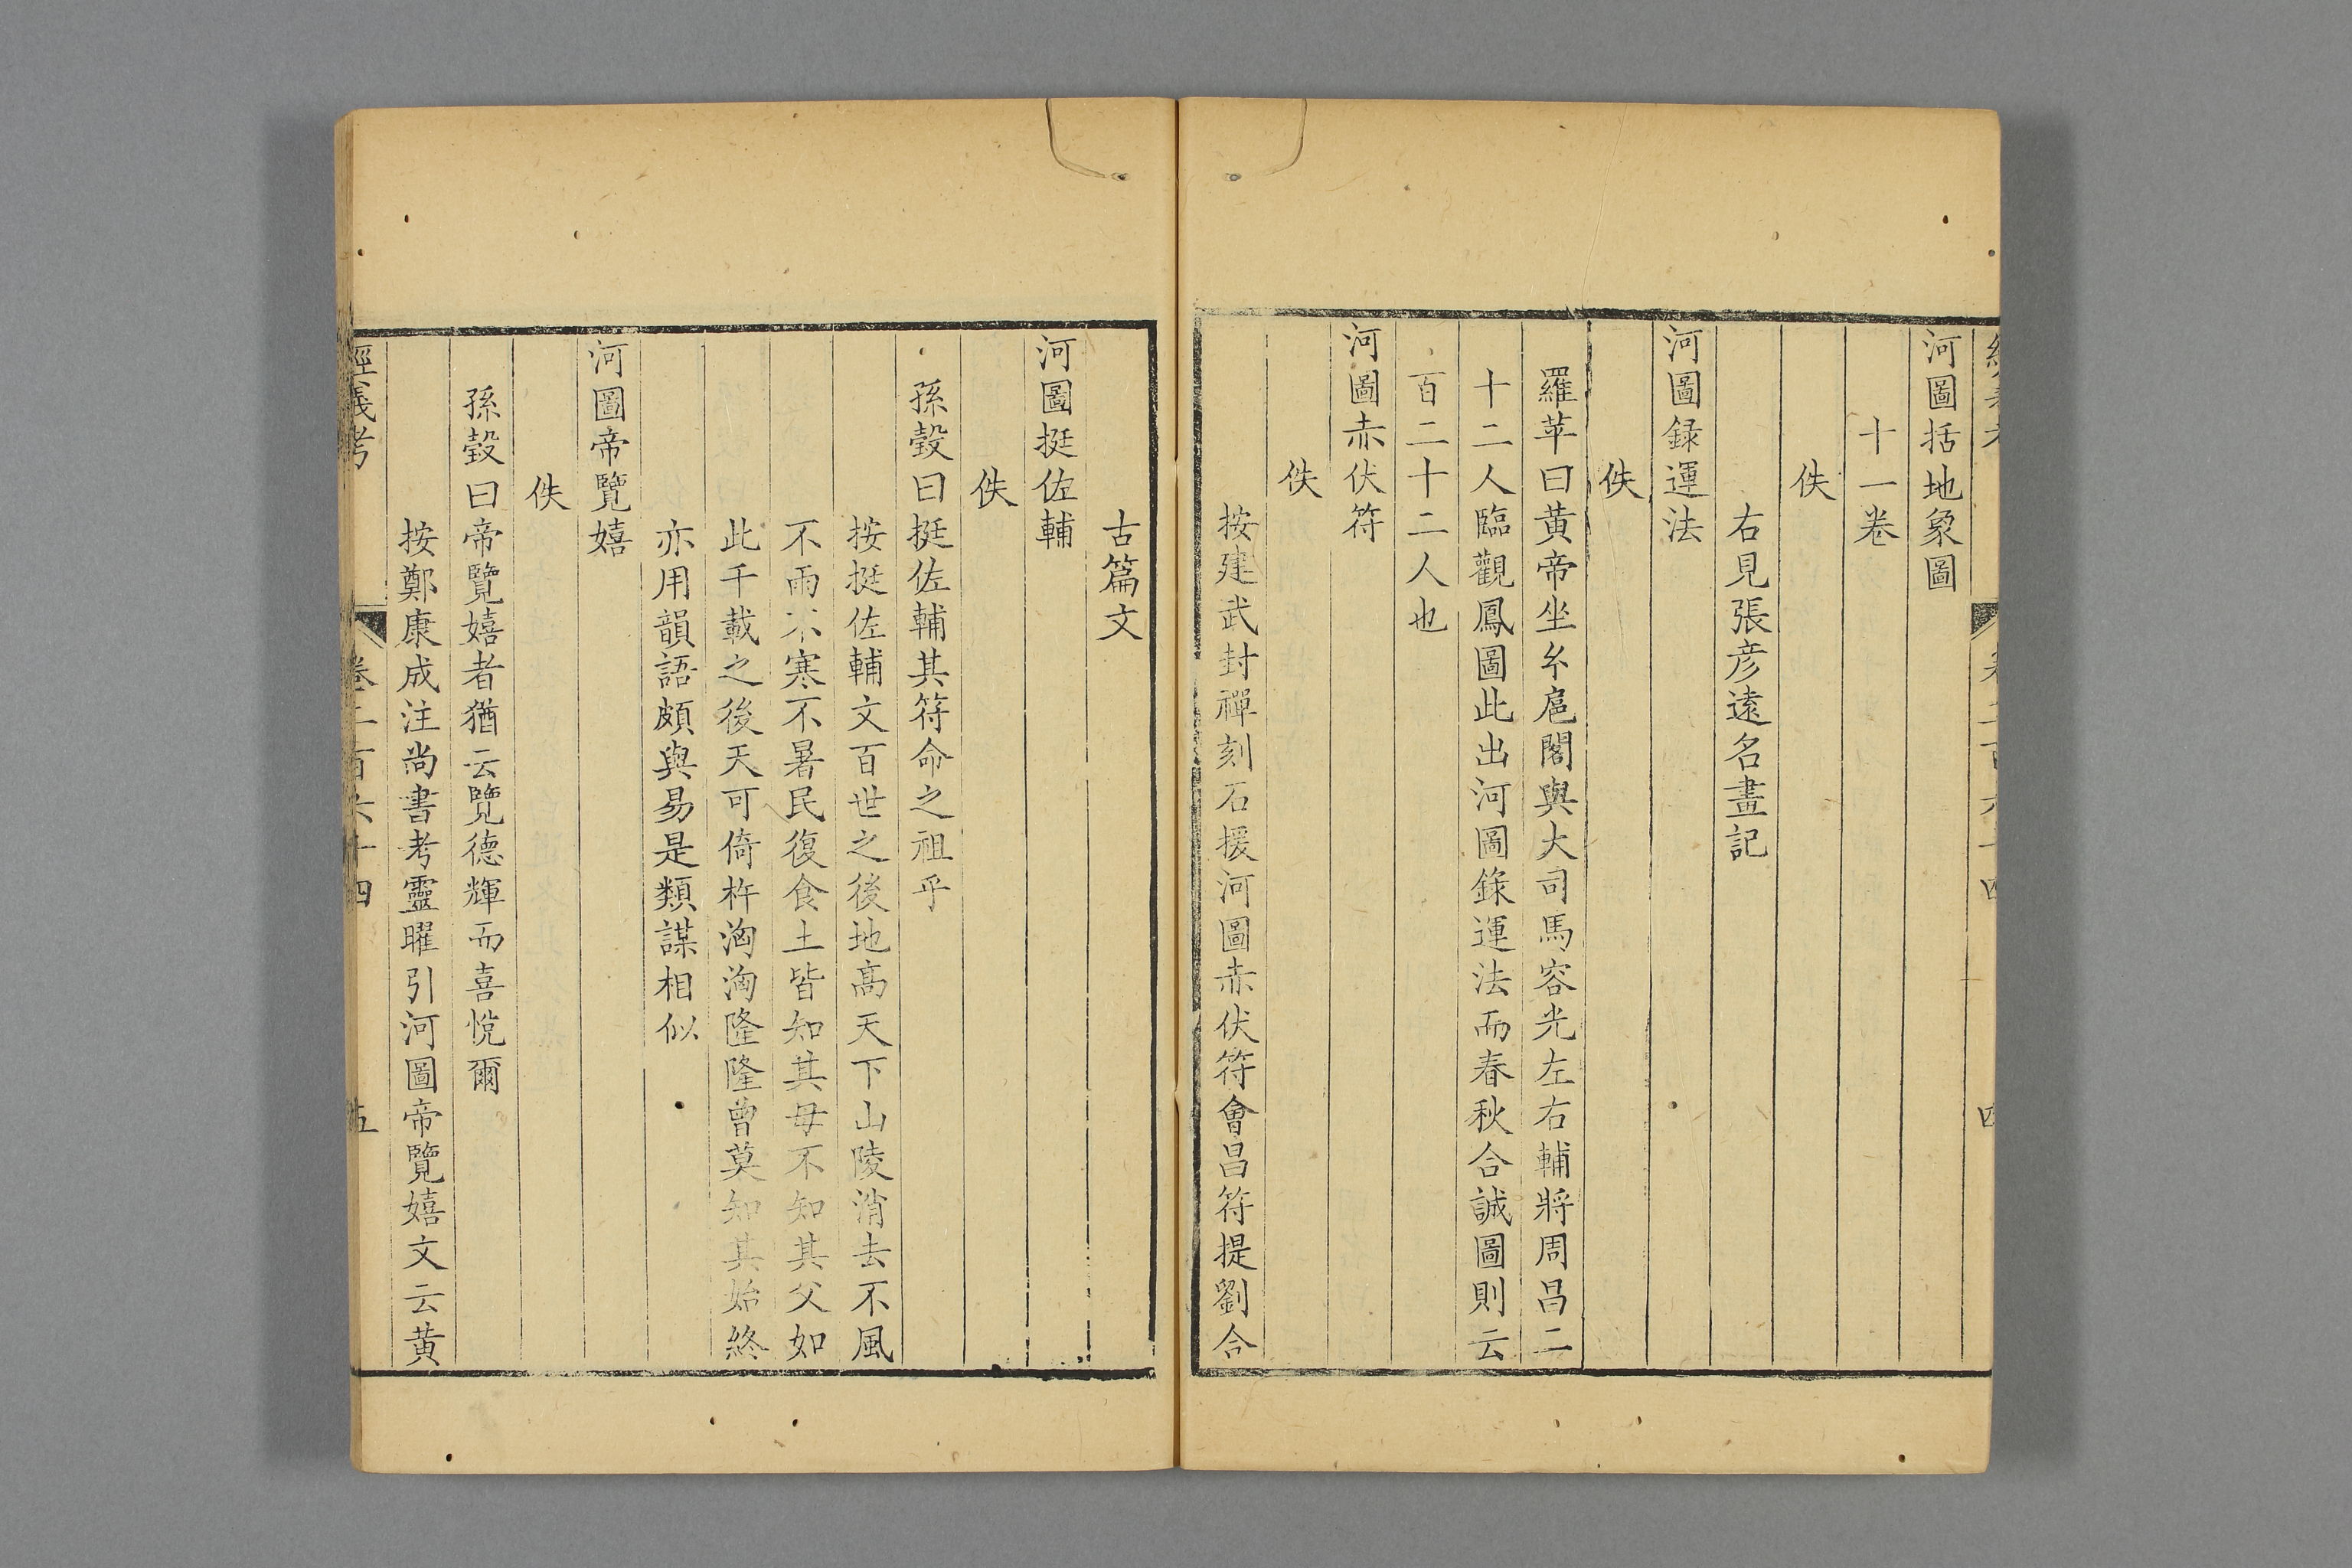 河圖括地象圖
十一卷
佚
右見張彥遠名畫記
河圖録運法
佚
羅苹曰黃帝坐玄扈閣與大司馬容光左右輔將周昌二
十二人臨觀鳳圖此出河圖錄運法而春秋合誠圖則云
百二十二人也
河圖赤伏符
佚
按建武封禪刻石援河圖赤伏符會昌符提劉合
古篇文
河圖挺佐輔
佚
孫瑴曰挺佐輔其符命之祖乎
按挺佐輔文百世之後地高天下山陵消去不風
不雨不寒不暑民復食土皆知其母不知其父如
此千載之後天可倚杵洶洶隆隆曾莫知其始終
亦用韻語頗與易是類謀相似
河圖帝覽嬉
佚
孫瑴曰帝覽嬉者猶云覽德輝而喜悅爾
按鄭康成注尚書考靈曜引河圖帝覽嬉文云黃
經義考
卷二百六十四
五